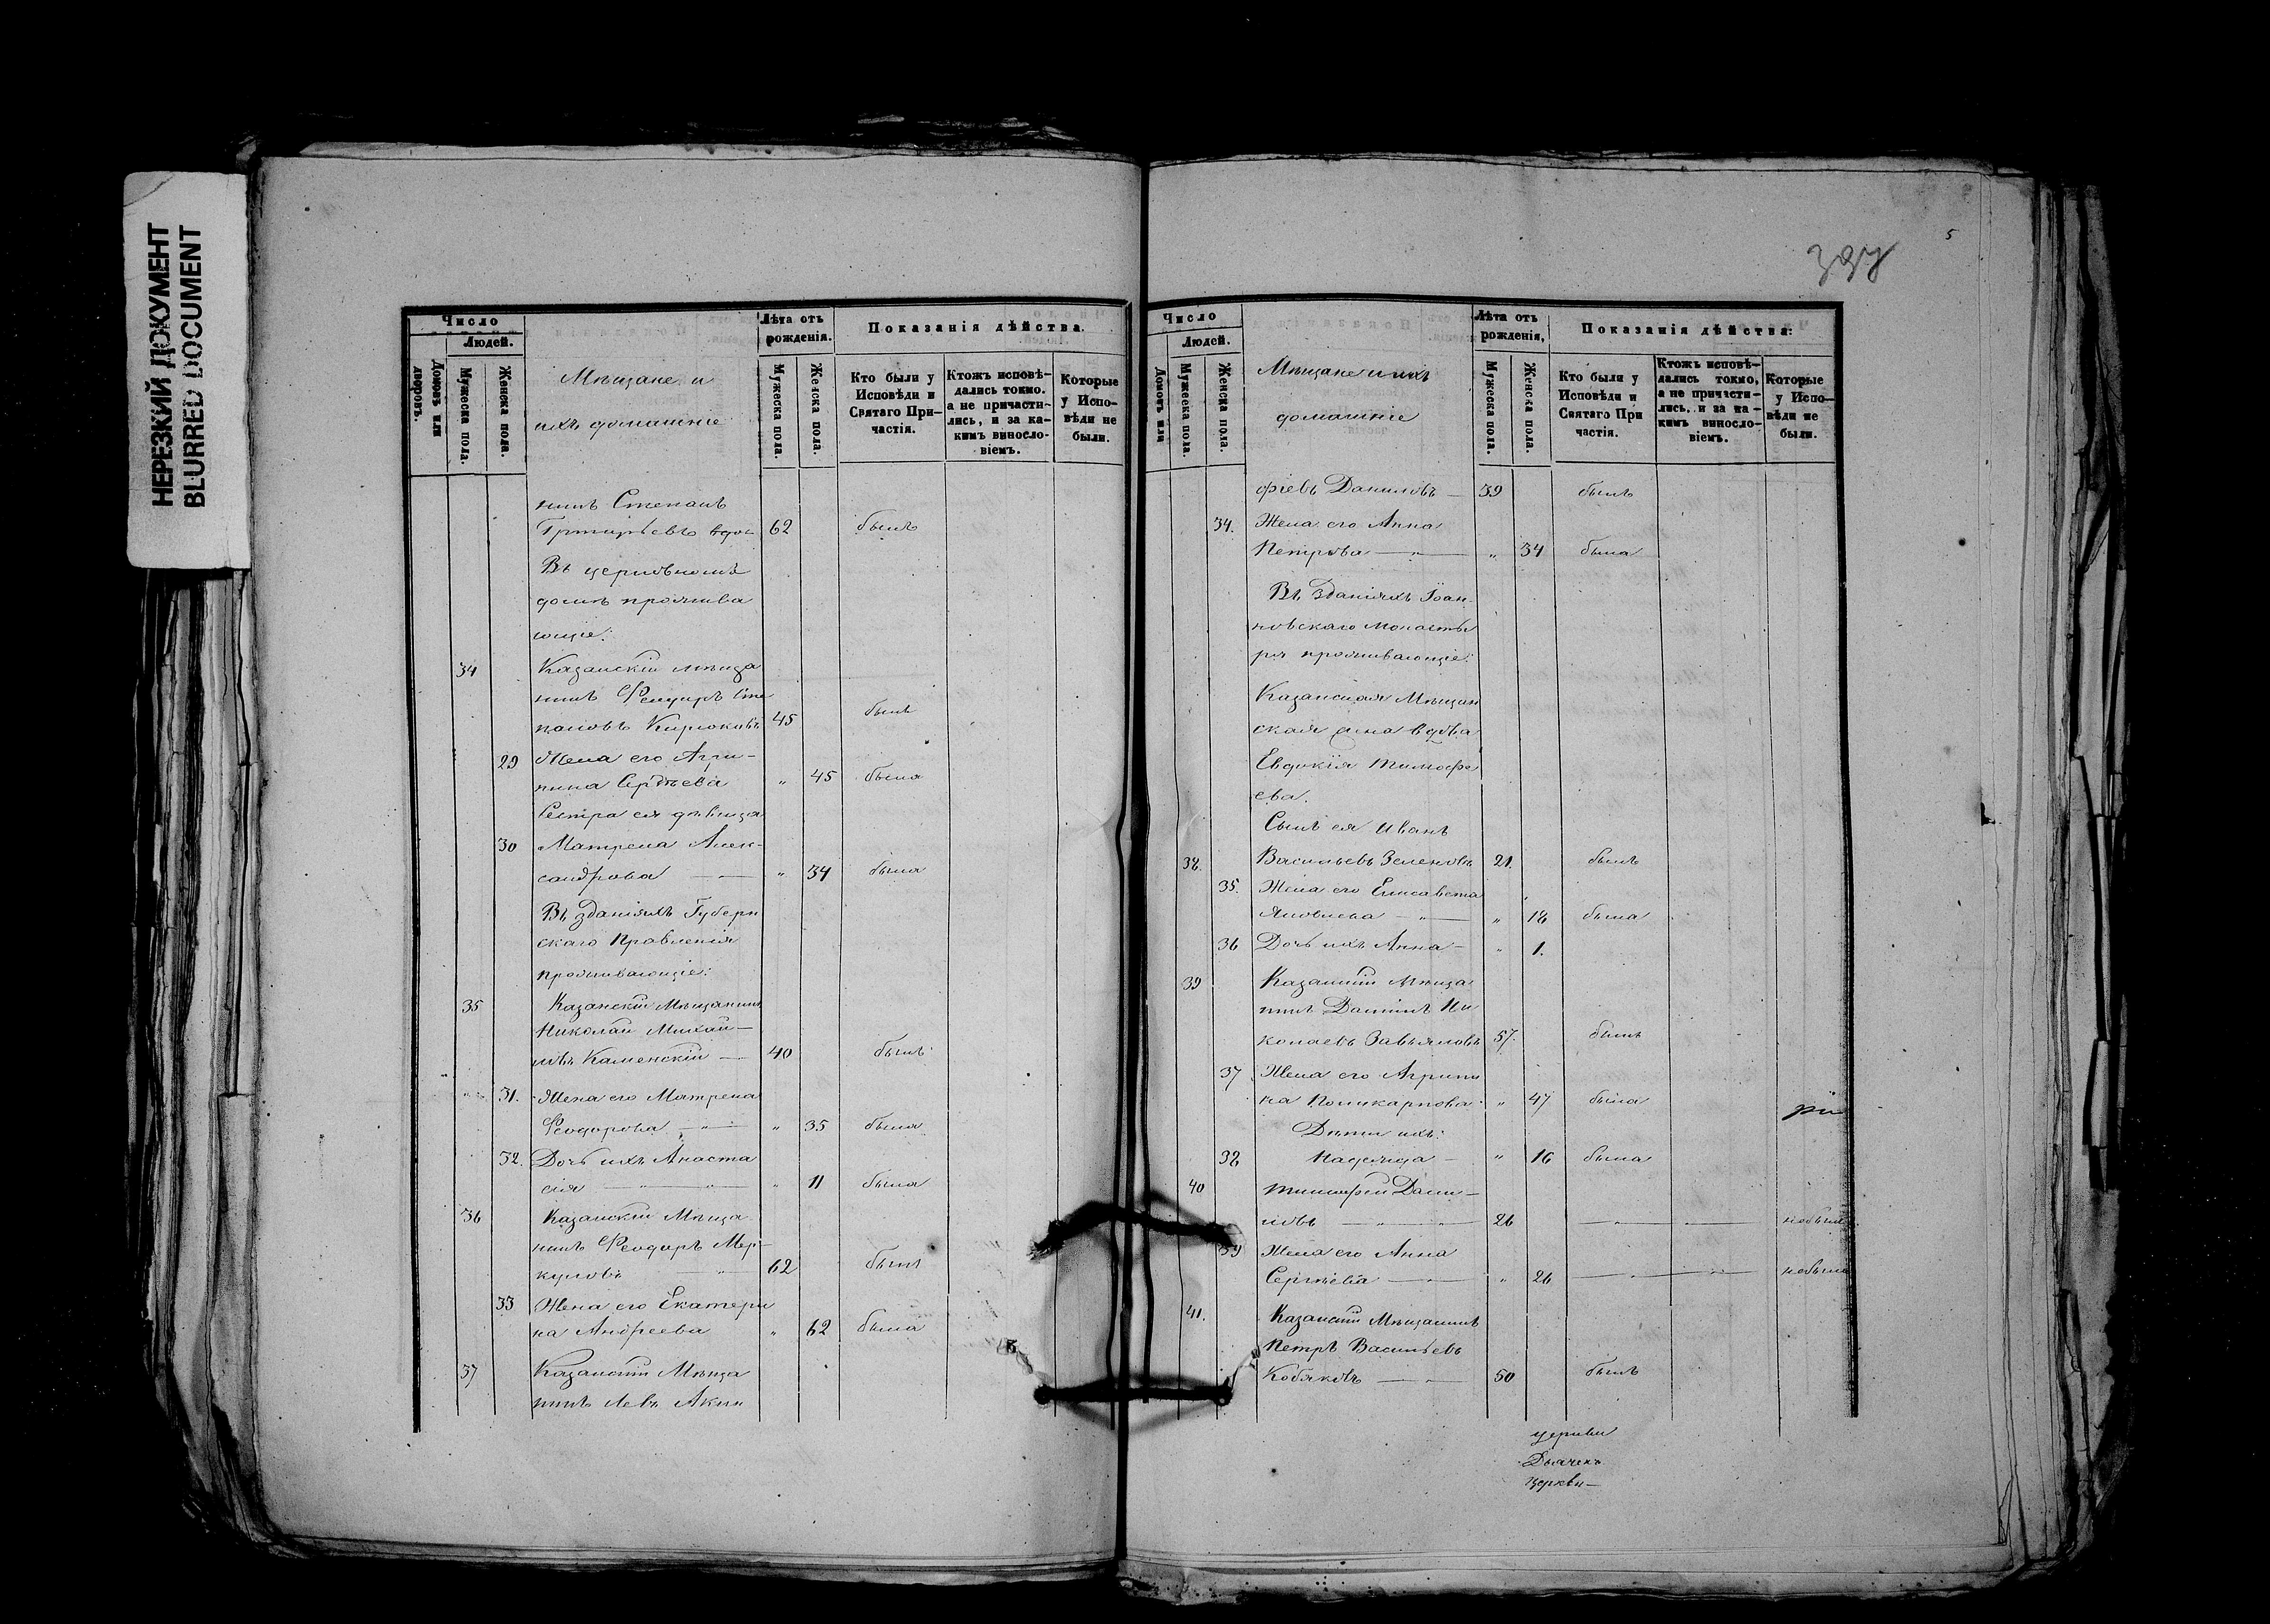 НЕРЕЗКИЙ ДОКУМЕНТ
BLURRED DOCUMENT
Число
Людей.
Домовъ или дворовъ.
Мужеска пола.
Женска пола.
Мѣщане и
ихъ домашніе
Лѣта отъ рожденія.
Мужеска пола.
Женска пола.
Показанія дѣйства.
Кто были у Исповѣди и Святаго Причастія.
Ктожъ исповѣ-
дались токмо.
а не причасти-
лись, и за ка-
кимъ винсло-
віемъ.
Которые
у Испо-
вѣди не
были.
нинъ Степанъ
Григорьевъ вдов 62 былъ
Въ церковномъ
домѣ прожива
ющіе:
34 Казанскій мѣща
нинъ Феодоръ Сте
пановъ Кирюковъ 45 былъ
29 Жена его Агри-
пина Сергѣева " 45 была
Сестра ея дѣвица
30 Матрена Алек-
сандрова " 34 была
Въ зданіяхъ Губерн
скаго Правленія
проживающіе:
35 Казанскій Мѣщанинъ
Николай Михай-
ловъ Каменскій — 40 былъ
31. Жена его Матрена
Феодорова " 35 была
32. Дочь ихъ Анаста
сія " 11 была
36 Казанскій Мѣща
нинъ Феодоръ Мер-
куловъ 62 былъ
33 Жена его Екатери
на Андреева " 62 была
37 Казанскій Мѣща
нинъ Левъ Акин
397
5
Число
Людей.
Домовъ или
Мужеска пола.
Женска пола.
Мѣщане и ихъ
домашніе
Лѣта отъ
рожденія,
Мужеска пола.
Женска пола.
Показанія дѣйства:
Кто были у
Исповѣди и
Святаго При
частія.
Ктожъ исповѣ-
дались токмо,
а не причасти-
лись, и за ка-
кимъ винсло-
віемъ.
Которые
у Испо-
вѣди не
были.
фіевъ Даниловъ — 39 былъ
34. Жена его Анна
Петрова — " 34 была
Въ зданіяхъ Іоан-
новскаго Монасты
ря проживающіе:
Казанская Мѣщан
ская жена вдова
Евдокія Тимофе
ева.
Сынъ ея Иванъ
38. Васильевъ Зеленовъ 21. былъ
35. Жена его Елисавета
Яковлева — " 18 была
36 Дочь ихъ Анна — " 1.
39 Казанскій Мѣща
нинъ Даніилъ Ни
колаевъ Завьяловъ 57. былъ
37 Жена его Агрипи
на Поликарпова " 47 была
Дѣти ихъ:
38 Надежда — " 16 была
40 Тимофей Дани-
ловъ — 26 небылъ
39 Жена его Анна
Сергѣева — " 26 небыла
41. Казанскій Мѣщанинъ
Петръ Васильевъ
Кобяковъ — 50 былъ
церкви
Дьячекъ
церкви —